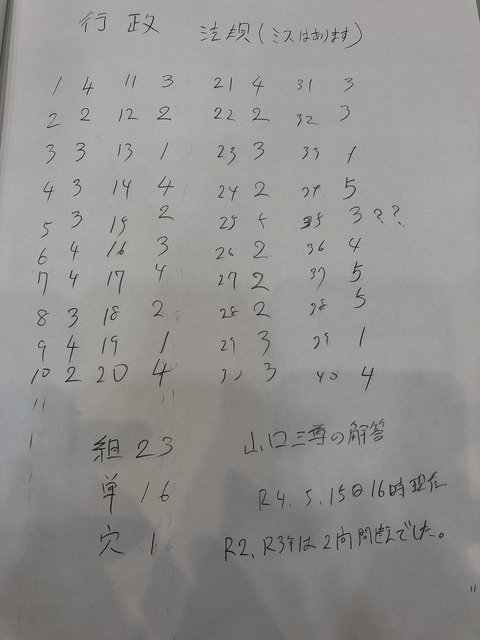 行政 法規(ミスはあります)
1 4 11 3 21 4 31 3
2 2 12 2 22 2 32 3
3 3 13 1 23 3 33 1
4 3 14 4 24 2 34 5
5 3 15 2 25 35 3??
6 4 16 3 26 2 36 4
7 4 17 4 27 2 37 5
8 3 18 2 28 2 38 5
9 4 19 1 29 3 39 1
10 2 20 4 30 3 40 4
11
1
組 23 山口三尊の解答
単 16 R4.5.15日16時現在
穴 1 R2,R3年は2問間違えでした。
11